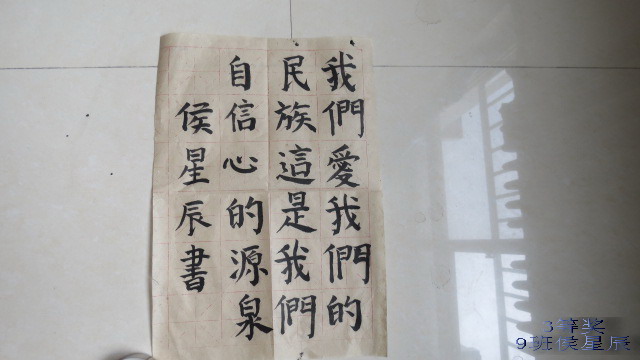 我們愛我們的
民族這是我們
自信心的源泉
侯星辰書
3等奖
9班侯星辰